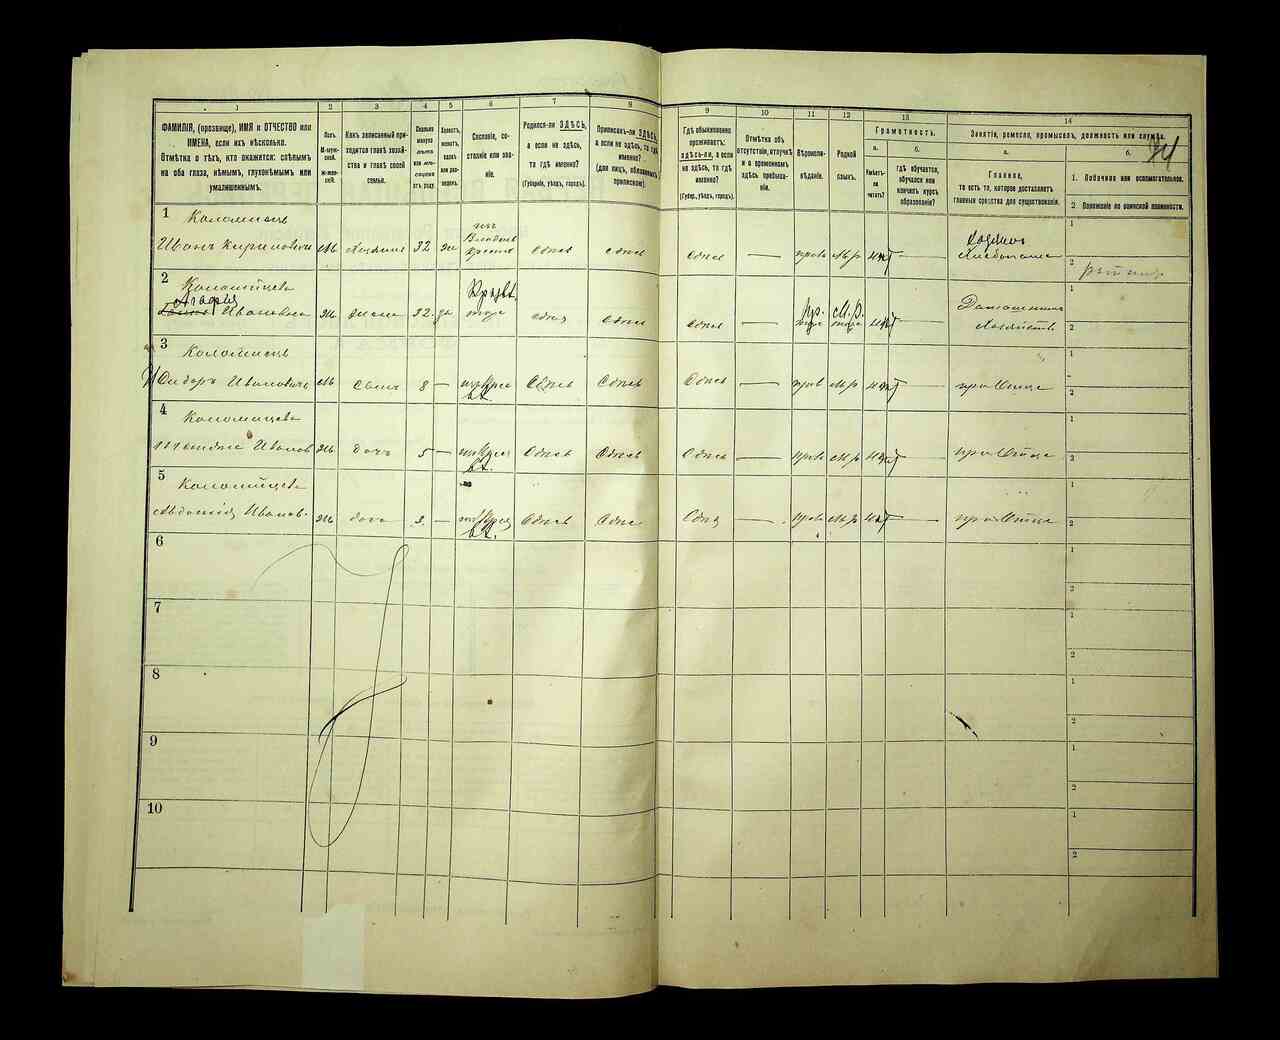 1
2
3
4
5
6
7
8
9
10
11
12
13
14
ФАМИЛІЯ, (прозвище), ИМЯ и ОТЧЕСТВО или
ИМЕНА, если ихъ нѣсколько.
Отмѣтка о тѣхъ, кто окажется: слѣпымъ
на оба глаза, нѣмымъ, глухонѣмымъ или
умалишеннымъ.
Полъ.
М-муж-
ской.
Ж-жен-
скій.
Какъ записанный при-
ходится главѣ хозяй-
ства и главѣ своей
семьи.
Сколько
минуло
лѣтъ
или мѣ-
сяцевъ
отъ роду.
Холостъ,
женатъ,
вдовъ
или раз-
веденъ.
Сословіе, со-
стояніе или зва-
ніе.
Родился-ли ЗДѢСЬ,
а если не здѣсь,
то гдѣ именно?
(Губернія, уѣздъ, городъ).
Приписанъ-ли ЗДѢСЬ,
а если не здѣсь, то гдѣ
именно?
(для лицъ, обязанныхъ
припискою).
Гдѣ обыкновенно
проживаетъ:
здѣсь-ли, а если
не здѣсь, то гдѣ
именно?
(Губер., уѣздъ, городъ).
Отмѣтка объ
отсутствіи, отлучкѣ
и о временномъ
здѣсь пребыва-
ніи.
Вѣроиспо-
вѣданіе.
Родной
языкъ.
Грамотность.
а.
Умѣетъ-
ли
читать?
б.
гдѣ обучается,
обучался или
кончилъ курсъ
образованія?
Занятіе, ремесло, промыселъ, должность или служба.
а.
Главное,
то есть то, которое доставляетъ
главныя средства для существованія.
б.
1. Побочное или вспомогательное.
2 Положеніе по воинской повинности.
1
Коломиецъ
Иванъ Кириловичъ
М
Хозяинъ
32
же
Здѣсь
Здѣсь
Здѣсь
прав
М.р
нѣт
Хозяинъ
Хлебопаше
1
2
2
Коломійцева
Агафья
Ивановна
Ж
Жена
32
за
тоже
Здѣсь
Здѣсь
Здѣсь
Пр.
М.Р.
нѣт
Домашнимъ
Хозяйств
1
2
3
Коломиецъ
Сидоръ Ивановичъ
М
Сынъ
8
Здѣсь
Здѣсь
Здѣсь
прав
М р
нѣт
при Отце
1
2
4
Коломицева
Иванов
Ж
дочь
5
Здѣсь
Здѣсь
Здѣсь
прав
М р
нѣт
при Отце
1
2
5
Коломійцева
Евдокия Иванов-
Ж
доч
Здѣсь
Здѣс
Здѣс
прав
М р
нѣт
при Отце
1
2
6
1
2
7
1
2
8
1
2
9
1
2
10
1
2